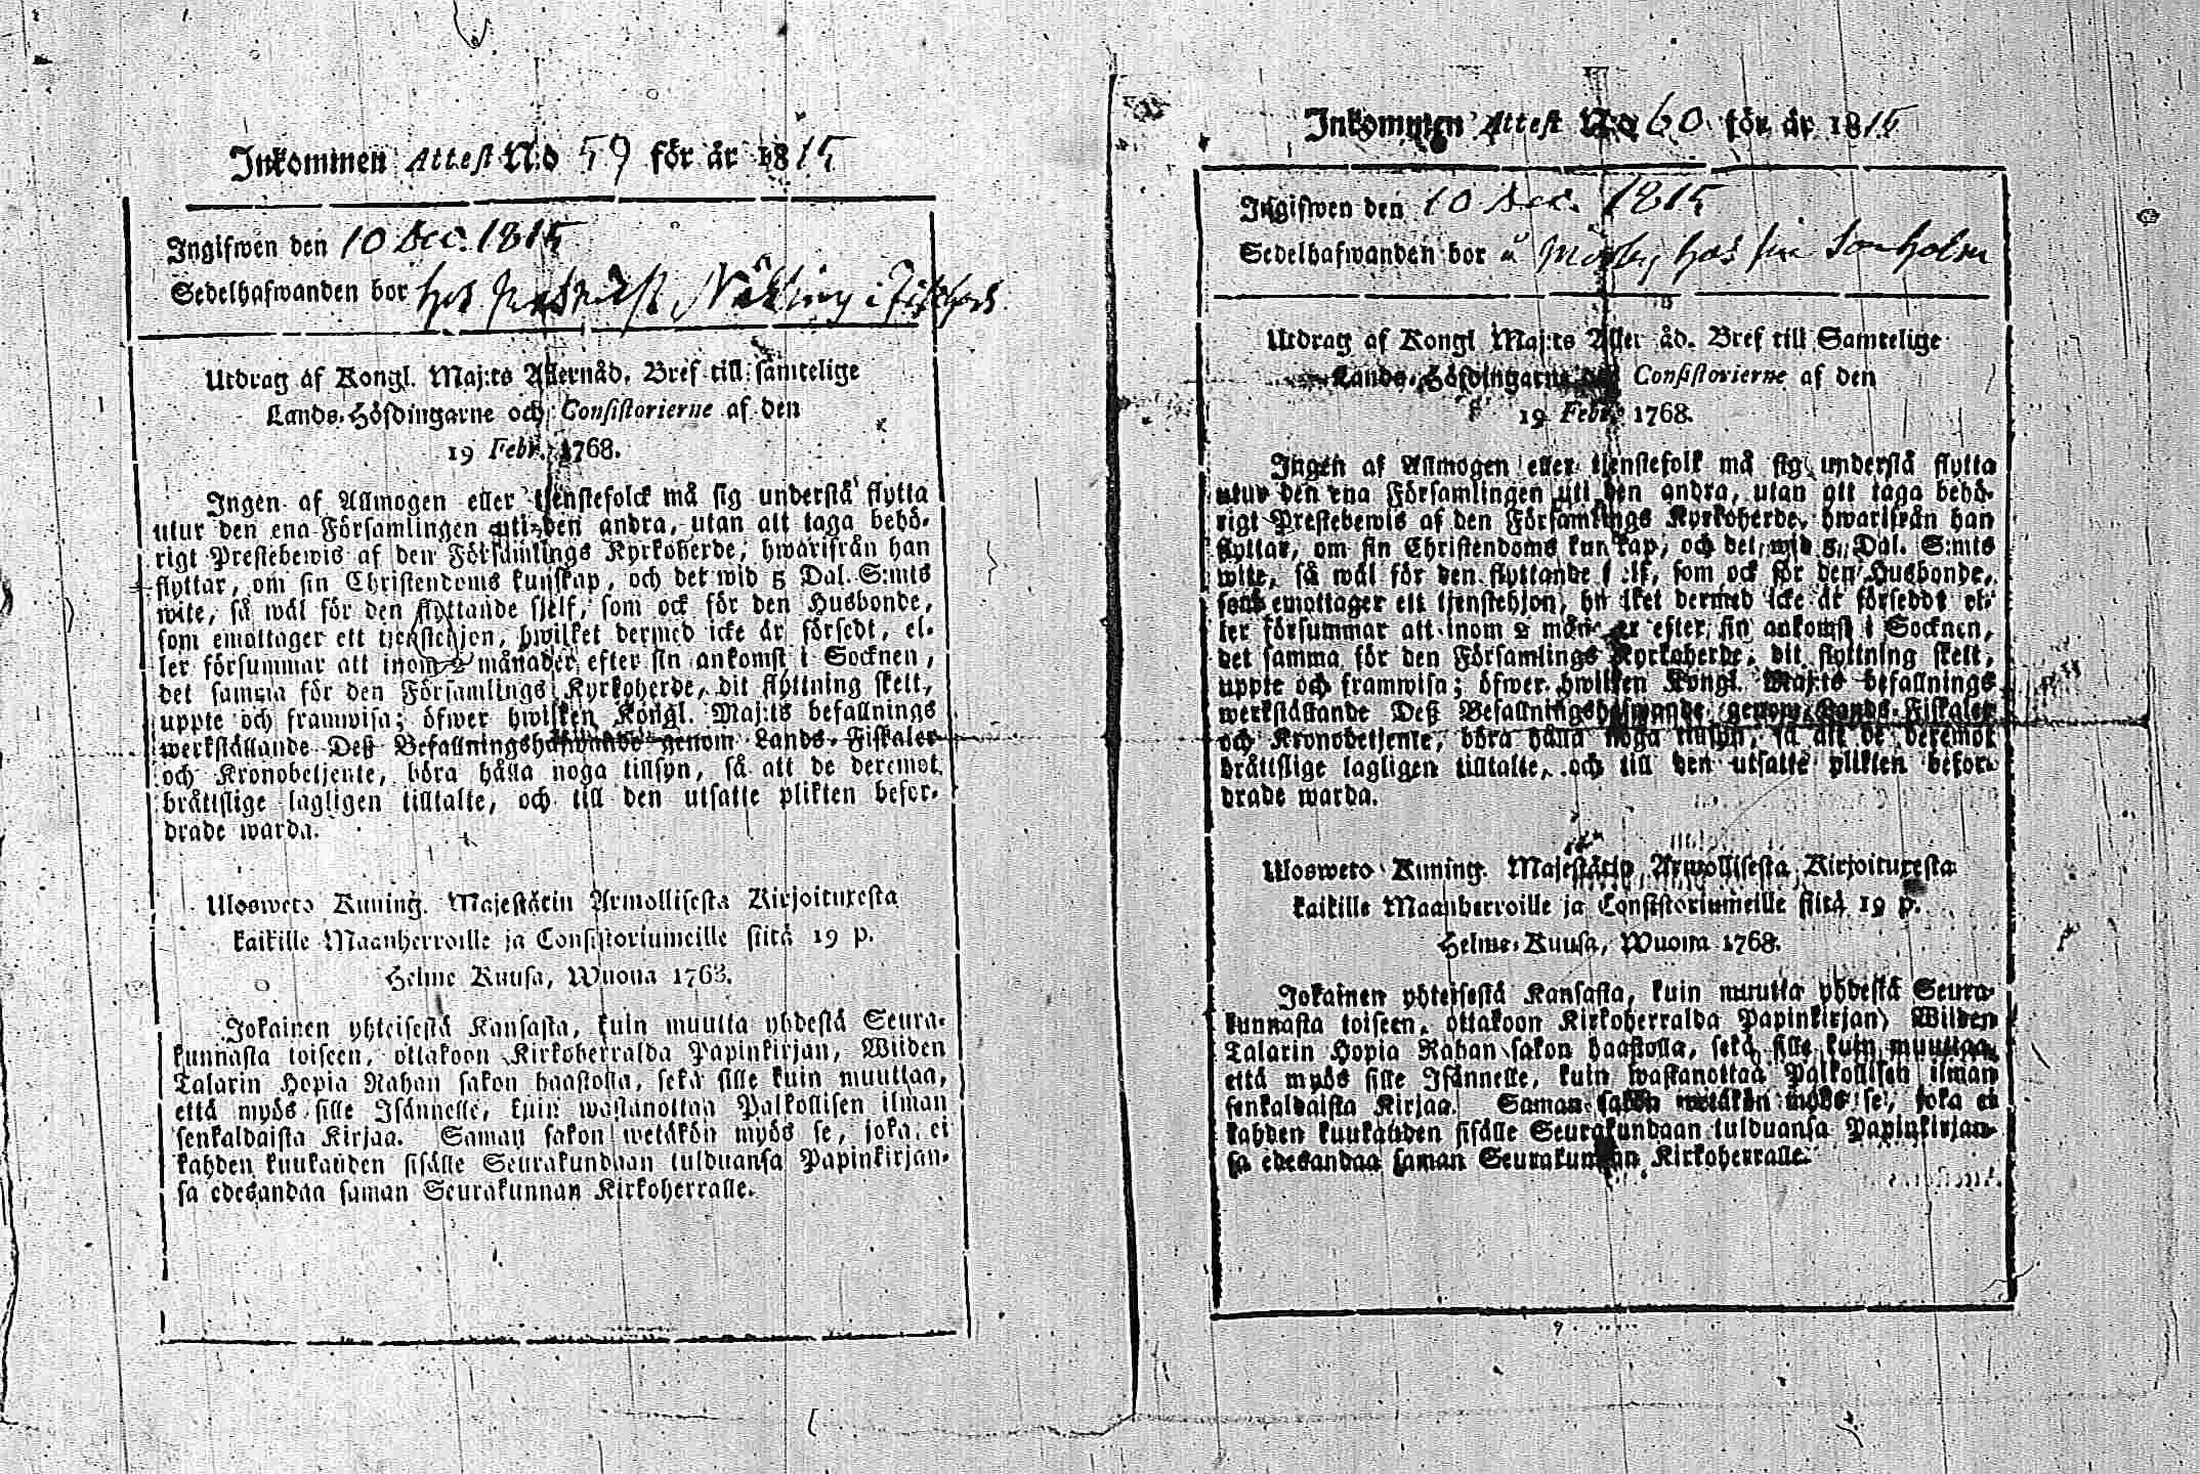 Inkommen Attest N:o 59 för år 1815
Ingifwen den 10 Dec. 1815
Sedelhafwanden bor hos Nätting i
Utdrag af Kongl. Maj:ts Allernåd. Bref till samtelige
Lands-Höfdingarne och Consistorierne af den
19 Febr. 1768.
Ingen af Allmogen eller tjenstefolck må sig understå flytta
utur den ena Församlingen uti den andra, utan att taga behö-
rigt Prestebewis af den Församlings Kyrkoherde, hwarifrån han
flyttar, om sin Christendoms kunskap, och det wid 5 Dal. S:mts
wite, så wäl för den flyttande sjelf, som ock för den Husbonde,
som emottager ett tjenstehjon, hwilket dermed icke är försedt, el-
ler försummar att inom 2 månader efter sin ankomst i Socknen,
det samma för den Församlings Kyrkoherde, dit flyttning skett,
uppte och framwisa; öfwer hwilken Kongl. Maj:ts befallnings
werkställande Deß Befallningshafwande genom Lands-Fiskaler
och Kronobetjente, böra hålla noga tillsyn, så att de deremot
bråttslige lagligen tilltalte, och till den utsatte plikten befor-
drade warda.
Ulosweto Kuning. Majestätin Armollisesta Kirjoituxesta
kaikille Maanherroille ja Consistoriumeille siitä 19 p.
Helme Kuusa, Wuona 1768.
Jokainen yhteisestä Kansasta, kuin muutta yhdestä Seura-
kunnasta toiseen, ottakoon Kirkoherralda Papinkirjan, Wiiden
Talarin Hopia Rahan sakon haastolla, sekä sille kuin muuttaa,
että myös sille Isännelle, kuin wastanottaa Palkollisen ilman
senkaldaista Kirjaa. Saman sakon wetäkön myös se, joka ei
kahden kuukauden sisälle Seurakundaan tulduansa Papinkirjan-
sa edesandaa saman Seurakunnan Kirkoherralle.
Inkommen Attest N:o 60 för år 1815
Ingifwen den 10 Dec. 1815
Sedelhafwanden bor å hos sin Son Holm
Utdrag af Kongl Maj:ts Aller åd. Bref till Samtelige
Lands-Höfdingarne Consistorierne af den
19 Febr. 1768.
Ingen af Allmogen eller tjenstefolk må sig understå flytta
utur den ena Församlingen uti den andra, utan att taga behö-
rigt Prestebewis af den Församlings Kyrkoherde, hwarifrån han
flyttar, om sin Christendoms kun kap, och det wid 5 Dal. S:mts
wite, så wäl för den flyttande s elf, som ock för den Husbonde,
som emottager ett tjenstehjon, hw lket dermed icke är förseddt el-
ler försummar att inom 2 måna er efter sin ankomst i Socknen,
det samma för den Församlings Kyrkoherde, dit flyttning skett,
uppte och framwisa; öfwer hwilken Kongl. Maj:ts befallnings
werkställande Deß Befallningshafwande genom Lands-Fiskaler
och Kronobetjente, böra hålla noga tillsyn, så att de deremot
bråttslige lagligen tilltalte, och till den utsatte plikten befor-
drade warda.
Ulosweto Kuning. Majestätin Armollisesta Kirjoituxesta
kaikille Maanherroille ja Consistoriumeille siitä 19 p.
Helme-Kuusa, Wuona 1768.
Jokainen yhteisestä Kansasta, kuin muutta yhdestä Seura-
kunnasta toiseen, ottakoon Kirkoherralda Papinkirjan, Wiiden
Talarin Hopia Rahan sakon haastolla, sekä sille kuin muuttaa,
että myös sille Isännelle, kuin wastanottaa Palkollisen ilman
senkaldaista Kirjaa. Saman sakon wetäkön myös se, joka ei
kahden kuukauden sisälle Seurakundaan tulduansa Papinkirjan-
sa edesandaa saman Seurakunnan Kirkoherralle.